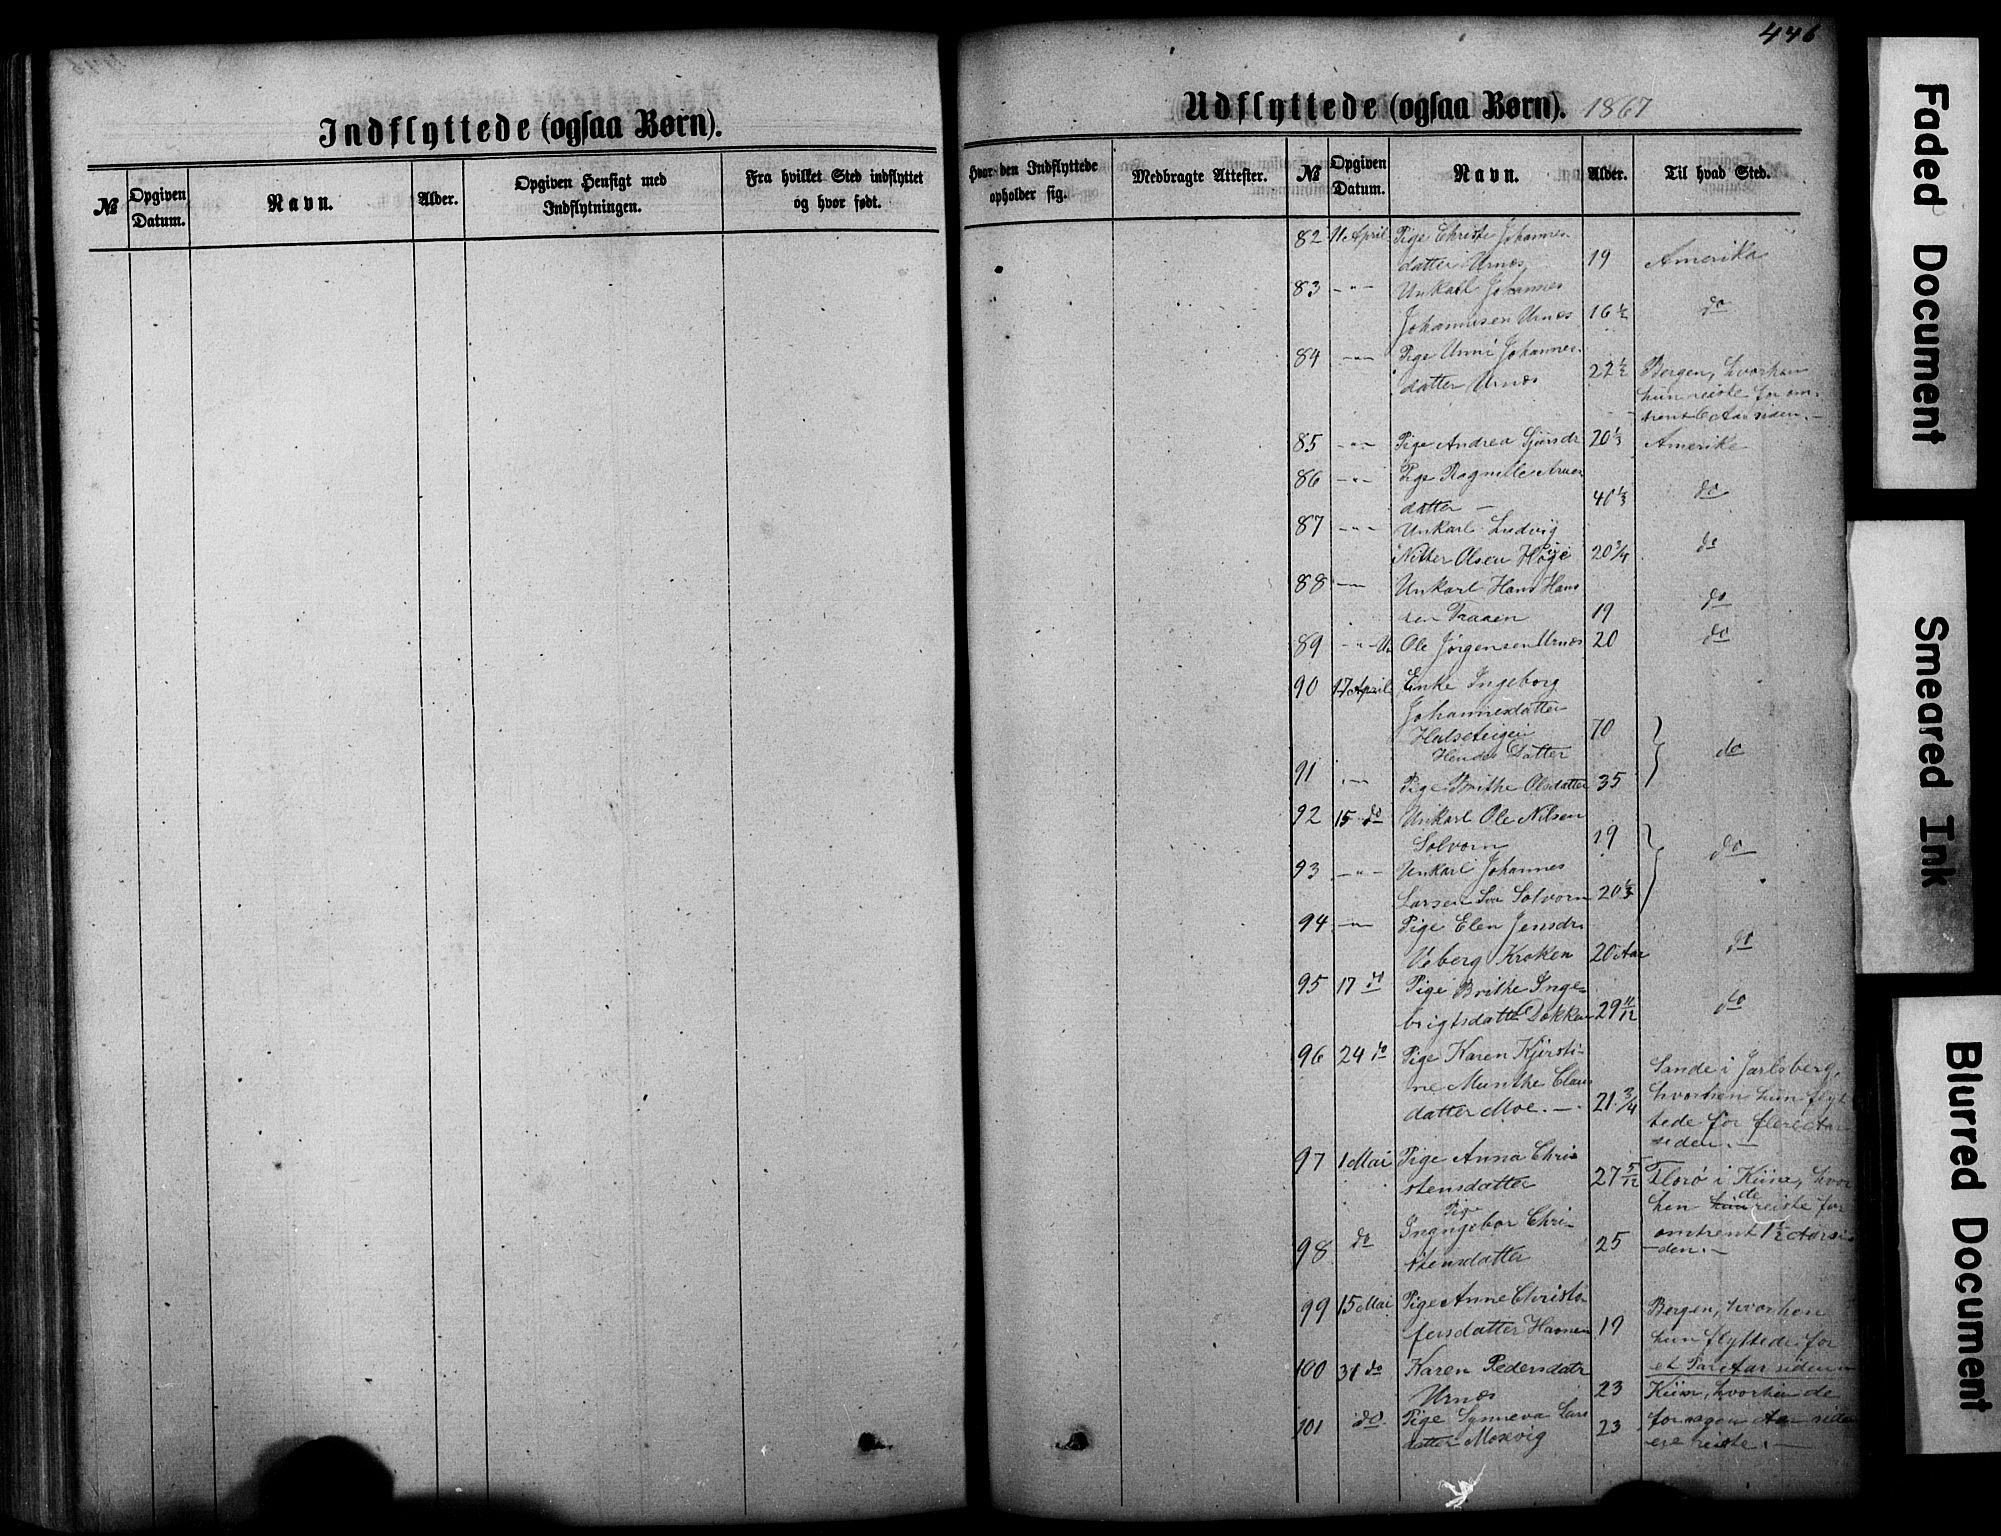 446
Indflyttede (ogsaa Børn).
№
Opgiven Datum.
Navn.
Alder.
Opgiven Hensigt med Indflytningen.
Fra hvilket Sted indflyttet og hvor født.
Udflyttede (ogsaa Børn). 1867
Hvor den Indflyttede opholder sig.
Medbragte Attester.
№
Opgiven Datum.
Navn.
Alder.
Til hvad Sted.
82 11 April Pige Christi Johannes-
datter Urnæs 19 Amerika
83 -"- Unkarl Johannes
Johannesen Urnæs 16 1/2 do
84 -"- Pige Unni Johannes-
datter Urnæs 22 1/2 Bergen, hvorhen
hun reiste for om-
trent 6 Aar siden.-
85 -"- Pige Andrea 20 1/3 Amerika
86 -"- Pige Ragnille
datter - 40 1/3 do
87 -"- Unkarl Ludvig
Nitter Olsen Høge 20 3/4 do
88 -"- Unkarl Hans Hans
sen Traaen 19 do
89 -"- Un Ole Jørgensen Urnæs 20 do
90 17 April Enke Ingeborg
Johannesdatter
70
Hendes Datter do
91 -"- Pige Brithe Olsdatter 35
92 15 do Unkarl Ole Nilsen
Solvorn 19 do
93 -"- Unkarl Johannes
Larsen Solvorn 20 1/3
94 -"- Pige Elen Jensdr
Veberg Kroken 20 Aar do
95 17 do Pige Brithe Inge-
brigtsdatter Døkken 29 11/12 do
96 24 do Pige Karen Kjirsti-
ne Munthe Claus
datter Moe.- 21 3/4 Sande i Jarlsberg,
hvorhen hun flyt
tede for flere Aar
siden.-
97 1 Mai Pige Anna Chri
stensdatter 27 5/12 Florø i Kiin, hvor
hen de reiste for
98 do Pige Ingngebor Chri-
stensdatter 25 omtrent 1 1/2 Aar si
den.-
99 15 Mai Pige Anne Christo
fersdatter 19 Bergen, hvorhen
hun flyttede for
et Par Aar siden
100 31 do Karen Pedersdatr
Urnæs 23 Kiin, hvorhen de
101 do. Pige Synneva Lars
datter Moxvig 23 for nogen Aar siden
reiste.-
Faded Document
Smeared Ink
Blurred Document